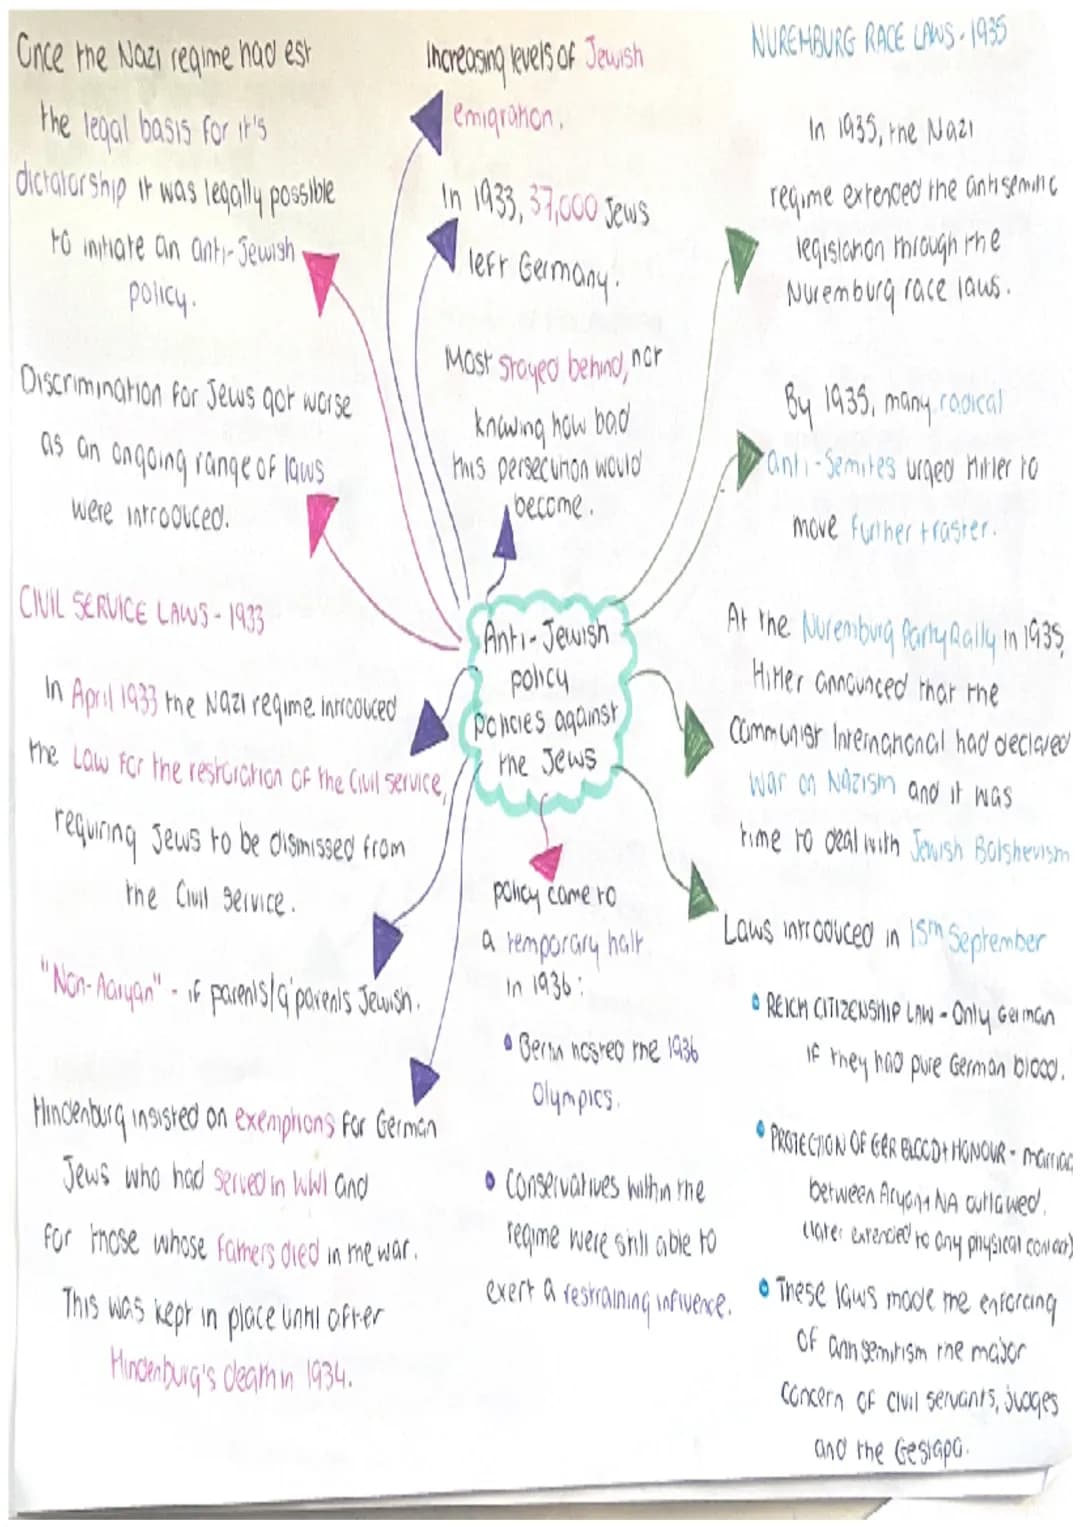 Once the Nazi regime had est
the legal basis for it's
dictatorship it was legally possible
to initiate an anti-Jewish
policy.
Discrimination for Jews got worse
as an ongoing range of laws
were introduced.
CIVIL SERVICE LAWS - 1933
In April 1933 the Nazi regime introduced
the Law for the restoration of the Civil service,
requiring Jews to be dismissed from
the Civil Service.
"Non-Aaryan" - if parents/g'parents Jewish.
Hindenburg insisted on exemptions for German
Jews who had served in WWI and
for those whose fathers died in the war.
This was kept in place until after
Hindenburg's death in 1934.
Increasing levels of Jewish
emigration.
In 1933, 37,000 Jews
left Germany.
Most stayed behind, not
knowing how bad
this persecution would
become.
Anti-Jewish
policy
policies against
the Jews
policy came to
a temporary halt
in 1936:
Berlin hosted the 1936
Olympics.
Conservatives within the
regime were still able to
exert a restraining influence.
NUREMBURG RACE LAWS - 1935
In 1935, the Nazi
regime extended the antisemitic
legislation through the
Nuremburg race laws.
By 1935, many radical
anti-Semites urged Hitler to
move further + faster.
At the Nuremburg Party Rally in 1935,
Hitler announced that the
Communist International had declared
war on Nazism and it was
time to deal with Jewish Bolshevism
Laws introduced in 15th September
REICH CITIZENSHIP LAW - Only German
if they had pure German blood.
PROTECTION OF GER BLOOD + HONOUR - marriag
between Aryan + NA outlawed.
(later extended to any physical contact)
These laws made the enforcing
of antisemitism the major
concern of civil servants, judges
and the Gestapo.